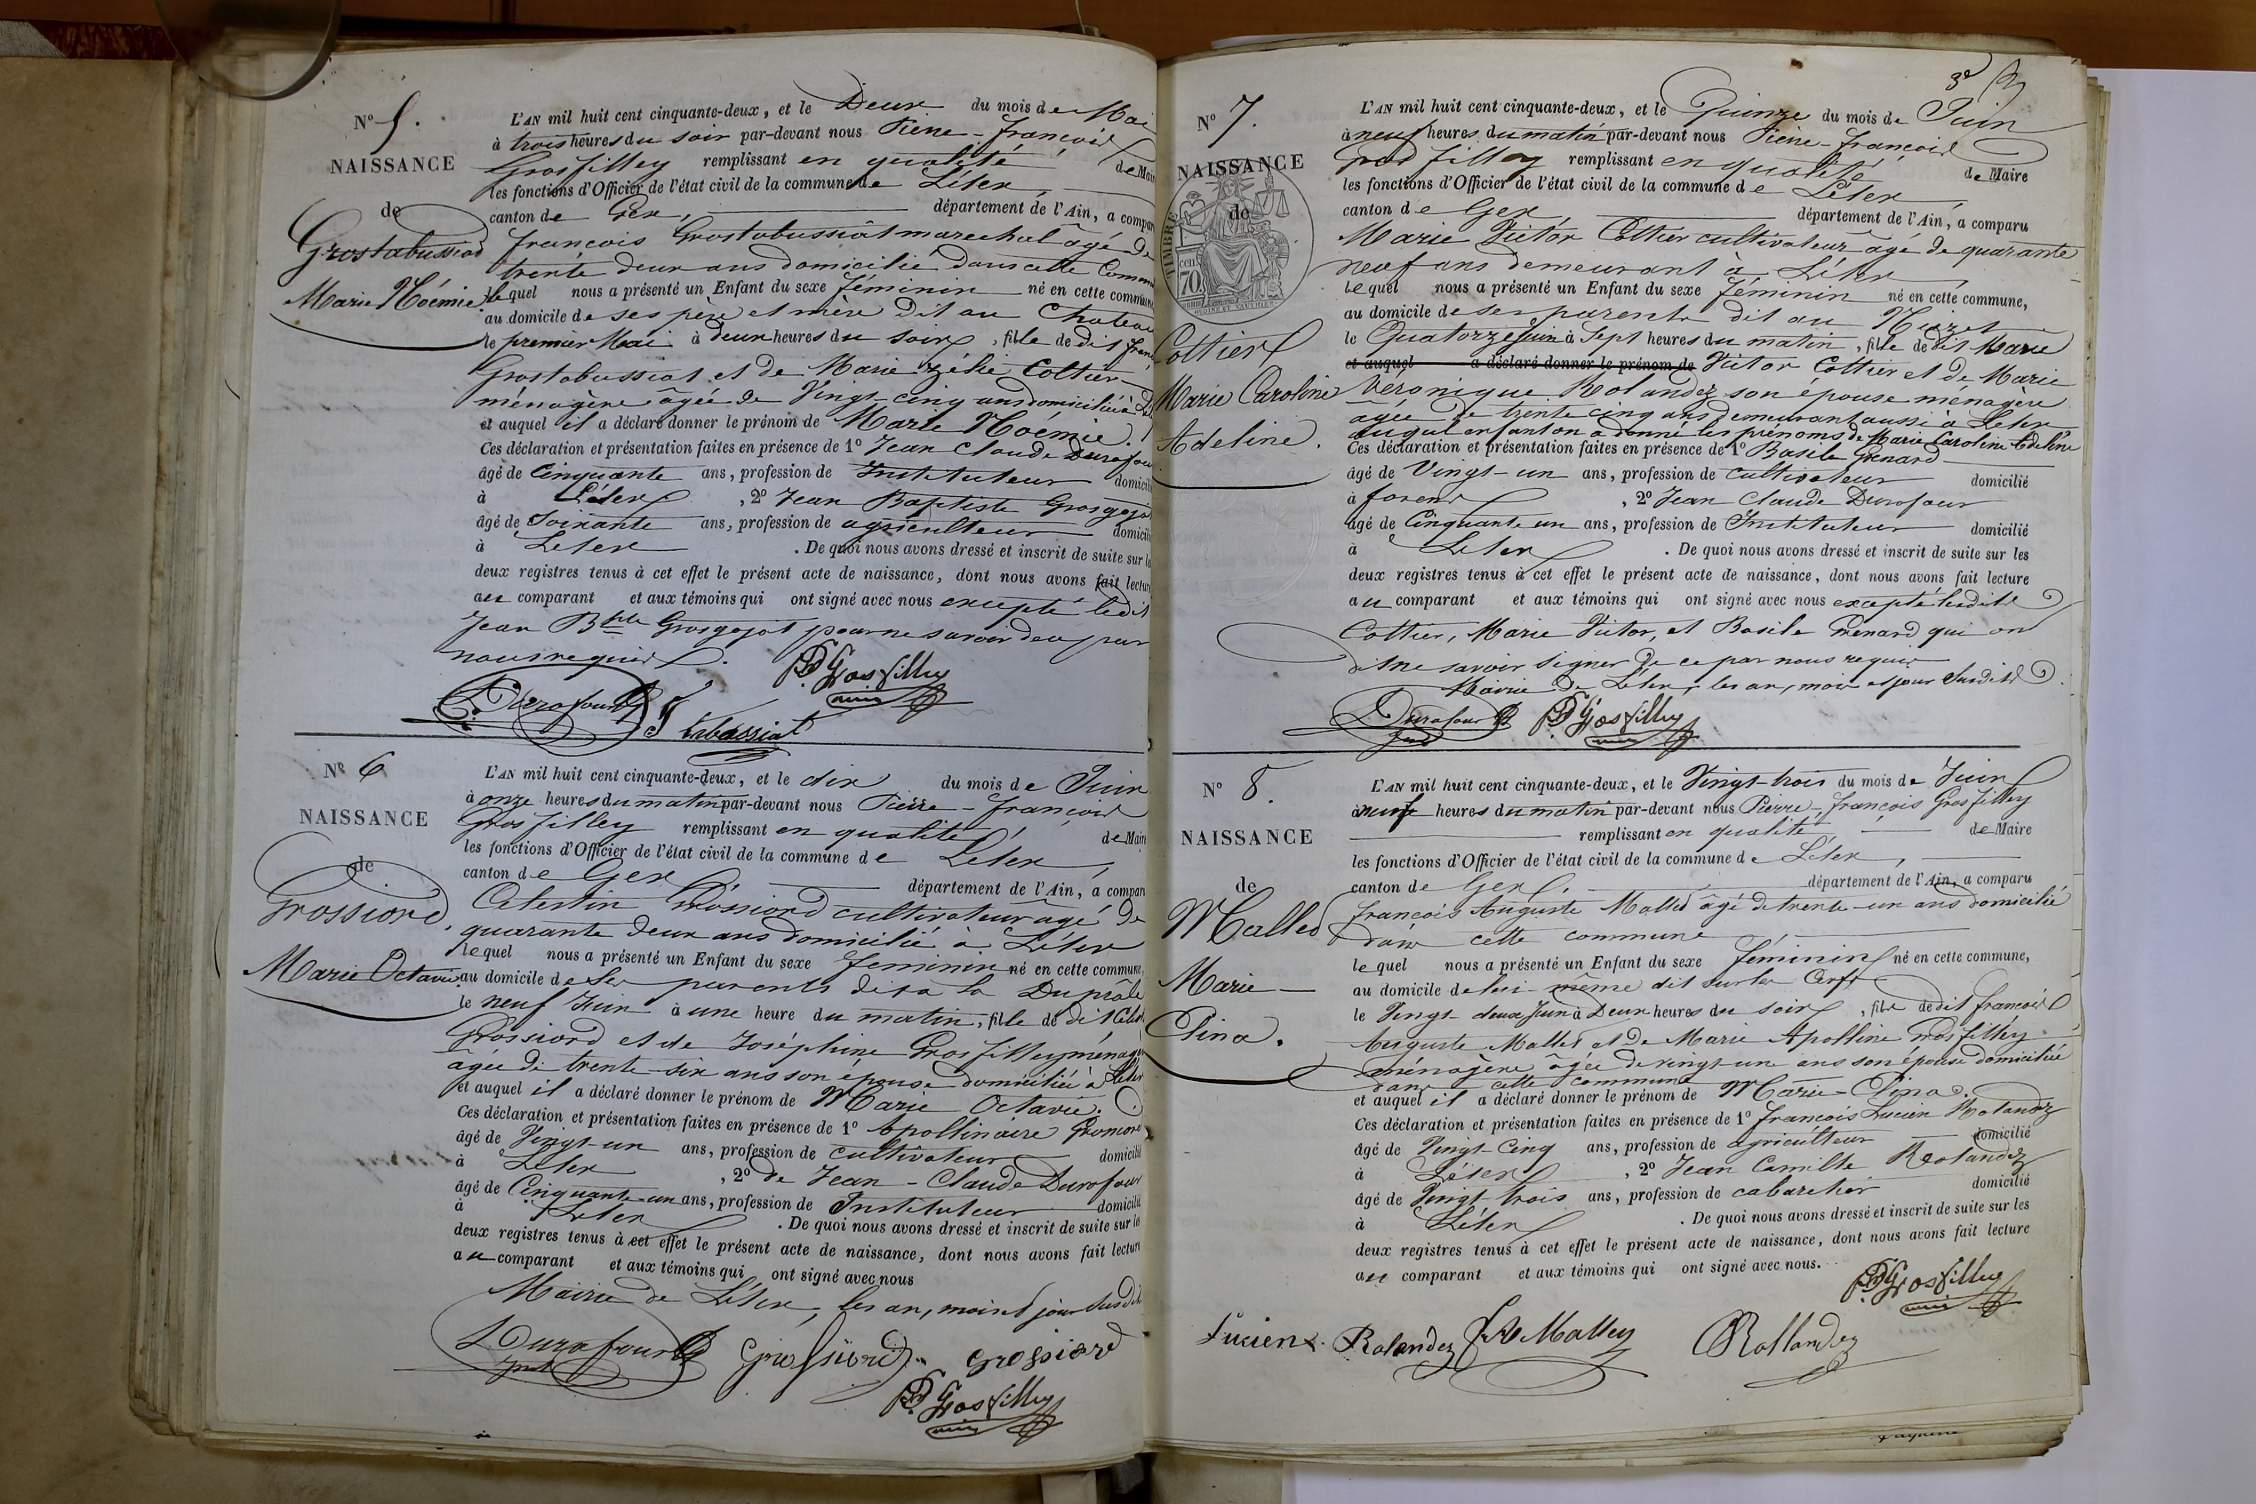 N° 5.
NAISSANCE
de
Grostabussiat
Marie Noémie.
L'AN mil huit cent cinquante-deux, et le Deux du mois de Mai
à trois heures du soir par-devant nous Pierre-François
Grosfilley remplissant en qualité de Maire
les fonctions d'Officier de l'état civil de la commune de Lélex,
canton de Gex, département de l'Ain, a comparu
françois Grostabussiat marechal âgé de
trente deux ans domicilié dans cette Commune
lequel nous a présenté un Enfant du sexe féminin né en cette commune
au domicile de ses père et mère dit au Chateau
le premier Mai à deux heures du soir, fille de dit françois
Grostabussiat et de Marie Zélie Cottier
ménagère âgée de Vingt cinq ans domiciliée à
et auquel il a déclaré donner le prénom de Marie Noémie.
Ces déclaration et présentation faites en présence de 1° Jean Claude Durafour
âgé de Cinquante ans, profession de Instituteur domicilié
à Lélex, 2° Jean Baptiste Grosgojat
âgé de Soixante ans, profession de agriculteur domicilié
à Lelex. De quoi nous avons dressé et inscrit de suite sur les
deux registres tenus à cet effet le présent acte de naissance, dont nous avons fait lecture
au comparant et aux témoins qui ont signé avec nous excepté ledit
Jean Bte Grosgojat pour ne savoir de ce par
nous requis.
PF Grosfilley
Durafour F Tabassiat
N° 6
NAISSANCE
de
Grossiord,
Marie Octavie.
L'AN mil huit cent cinquante-deux, et le dix du mois de Juin
à onze heures du matin par-devant nous Pierre-François
Grosfilley remplissant en qualité de Maire
les fonctions d'Officier de l'état civil de la commune de Lelex,
canton de Gex département de l'Ain, a comparu
Célestin Grossiord cultivateur âgé de
quarante deux ans domicilié à Lélex
lequel nous a présenté un Enfant du sexe féminin né en cette commune,
au domicile de ses parents dit à la Duprâle
le neuf Juin à une heure du matin, fille de dit
Grossiord et de Joséphine Grosfilley ménagère
âgée de trente-six ans son épouse domiciliée à Lélex
et auquel il a déclaré donner le prénom de Marie Octavie.
Ces déclaration et présentation faites en présence de 1° Apollinaire
âgé de Vingt-un ans, profession de cultivateur domicilié
à Lelex, 2° de Jean-Claude Durafour
âgé de Cinquante-un ans, profession de Instituteur domicilié
à Lelex. De quoi nous avons dressé et inscrit de suite sur les
deux registres tenus à cet effet le présent acte de naissance, dont nous avons fait lecture
au comparant et aux témoins qui ont signé avec nous
Mairie de Lélex, les an, mois et jour susdits
Durafour Grossiord grossiord
PF Grosfilley
3e
N° 7.
NAISSANCE
de
TIMBRE
70.
Cottier
Marie Caroline
Adeline.
L'AN mil huit cent cinquante-deux, et le Quinze du mois de Juin
à neuf heures du matin par-devant nous Pierre-François
Gros filley remplissant en qualité de Maire
les fonctions d'Officier de l'état civil de la commune de Lélex
canton de Gex département de l'Ain, a comparu
Marie Victor Cottier cultivateur âgé de quarante
neuf ans demeurant à Lélex,
lequel nous a présenté un Enfant du sexe féminin né en cette commune,
au domicile de ses parents dit au Niaizet
le Quatorze Juin à Sept heures du matin, fille de dit Marie
et auquel a déclaré donner le prénom de Victor Cottier et de Marie
Véronique Rolandez son épouse ménagère
âgée de trente cinq ans demeurant aussi à Lelex
auquel enfant on a donné les prénoms de Marie Caroline Adeline
Ces déclaration et présentation faites en présence de 1° Basile Grenard
âgé de Vingt-un ans, profession de cultivateur domicilié
à forens, 2° Jean Claude Durafour
âgé de Cinquante un ans, profession de Instituteur domicilié
à Lelex. De quoi nous avons dressé et inscrit de suite sur les
deux registres tenus à cet effet le présent acte de naissance, dont nous avons fait lecture
au comparant et aux témoins qui ont signé avec nous excepté lesdits
Cottier, Marie Victor, et Basile Grenard qui on
dit ne savoir signer de ce par nous requis
Mairie de Lélex, les an, mois et jour susdits.
Durafour PF Grosfilley
N° 8.
NAISSANCE
de
Mallet
Marie
Pina.
L'AN mil huit cent cinquante-deux, et le Vingt-trois du mois de Juin
à neuf heures du matin par-devant nous Pierre-françois Grosfilley
remplissant en qualité de Maire
les fonctions d'Officier de l'état civil de la commune de Lélex,
canton de Gex. département de l'Ain, a comparu
françois Auguste Mallet âgé de trente-un ans domicilié
dans cette commune
lequel nous a présenté un Enfant du sexe féminin né en cette commune,
au domicile de lui-même dit sur les Cerfs
le Vingt deux Juin à Deux heures du soir, fille de dit françois
Auguste Mallet et de Marie Apolline Grosfilley
ménagère âgée de vingt-un ans son épouse domiciliée
dans cette commune
et auquel il a déclaré donner le prénom de Marie-Pina.
Ces déclaration et présentation faites en présence de 1° françois Lucien Rolandez
âgé de Vingt-Cinq ans, profession de agriculteur domicilié
à Lélex, 2° Jean Camille Rolandez
âgé de Vingt-trois ans, profession de cabaretier domicilié
à Lélex. De quoi nous avons dressé et inscrit de suite sur les
deux registres tenus à cet effet le présent acte de naissance, dont nous avons fait lecture
au comparant et aux témoins qui ont signé avec nous.
PF Grosfilley
Lucien Rolandez FA Malley Rollandez